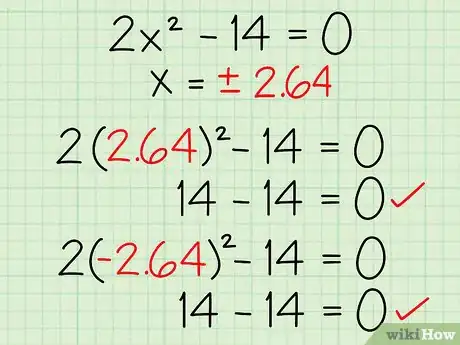 2x² − 14 = 0
x = ± 2.64
2(2.64)² − 14 = 0
14 − 14 = 0 ✓
2(-2.64)² − 14 = 0
14 − 14 = 0 ✓
wikiHow